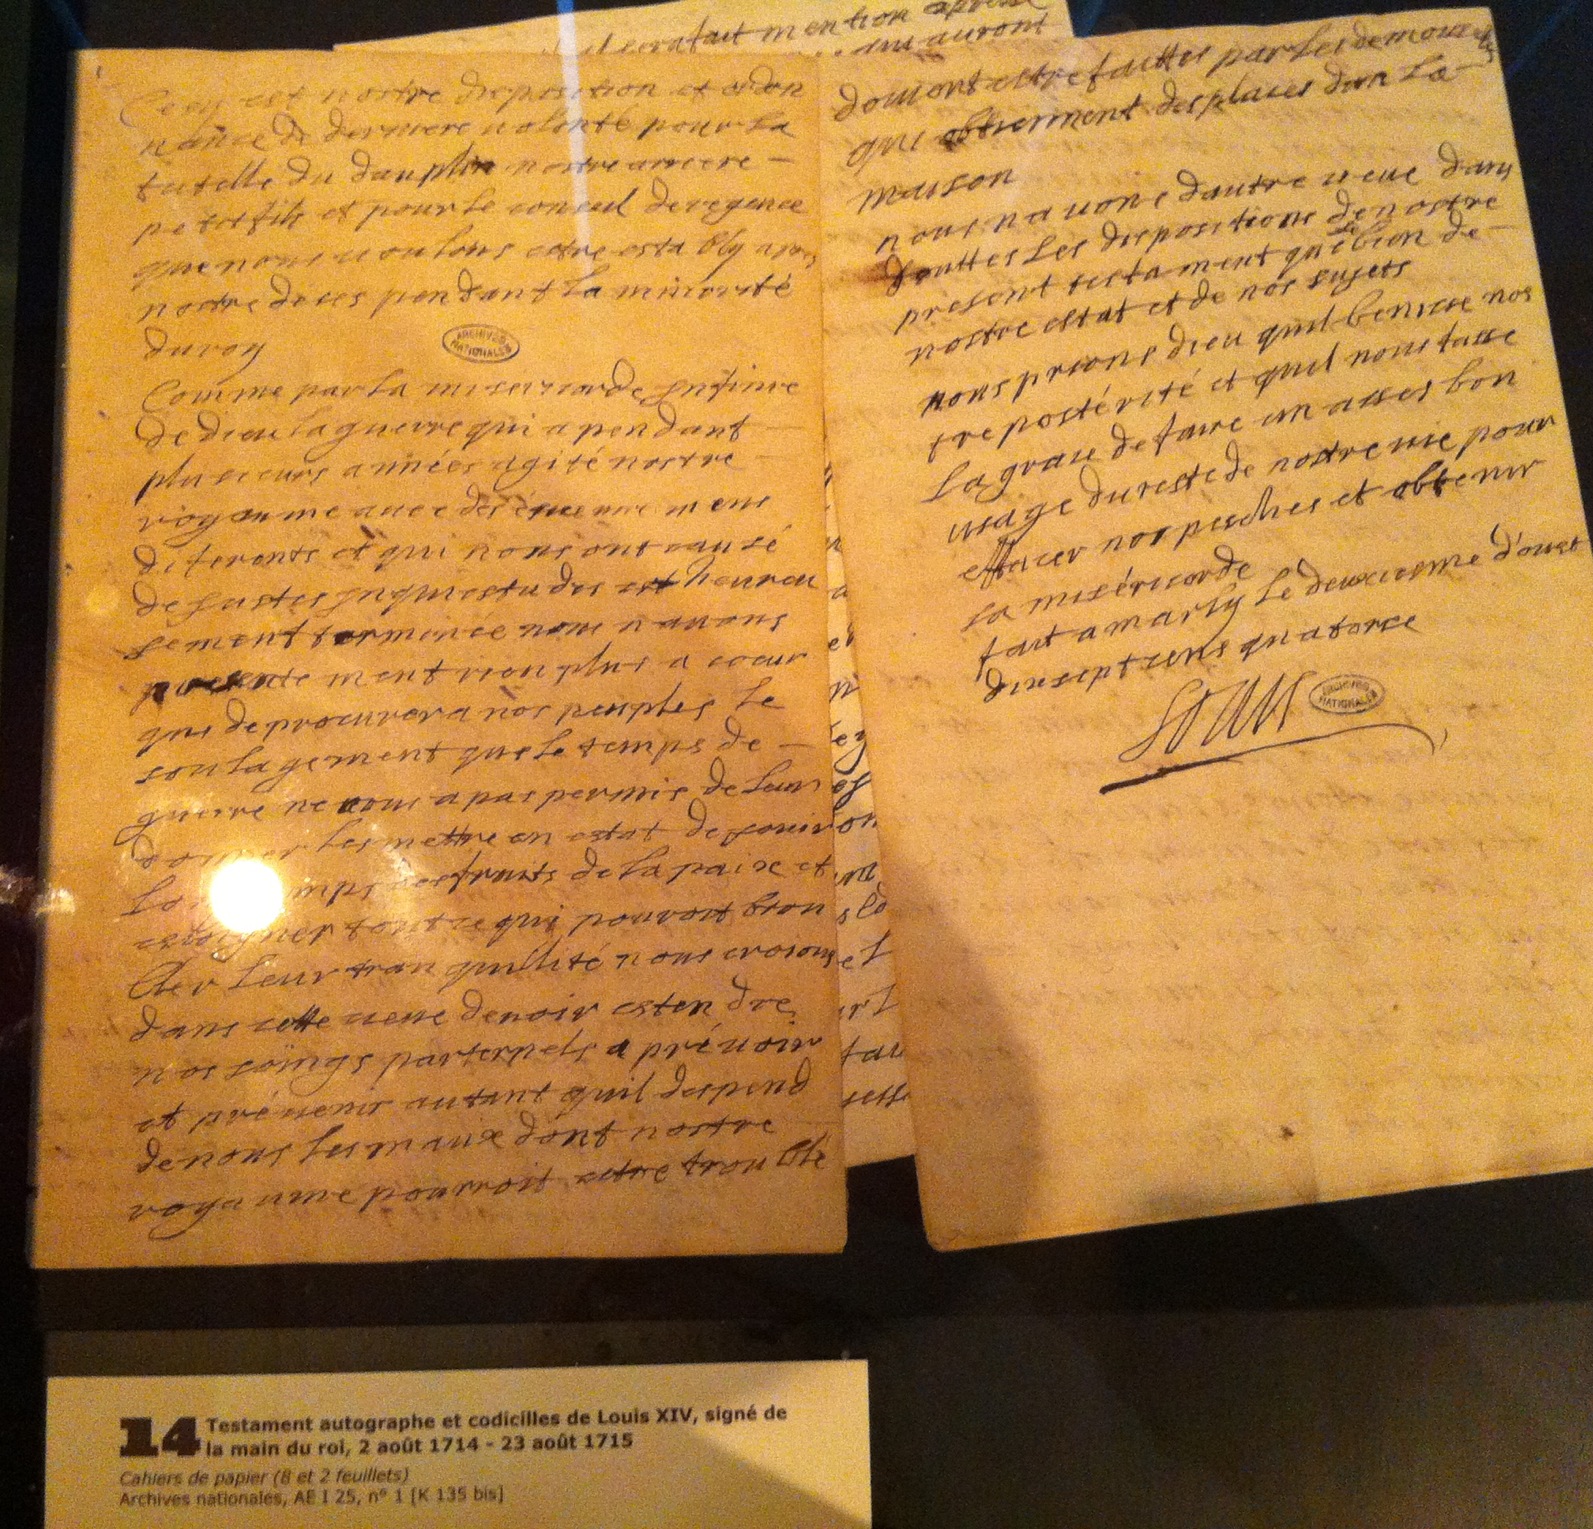 il sera fait mention
auront
Cecy est nostre disposition et ordon
nance de derniere uolonté pour la
tutelle du dauphin nostre arriere
petit fils et pour le conseil de regence
que nous uoulons estre estably apres
nostre deces pendant la minorité
du roy
ARCHIVES
NATIONALES
Comme par la misericorde Infinie
de dieu la guerre qui a pendant
plusieurs années agité nostre
royaume auec des éuenemens
diferents et qui nous ont causé
de Justes Inquiestudes est heureu
sement terminee nous nauons
presentement rien plus a coeur
que de procurer a nos peuples le
soulagement que le temps de
guerre ne nous a pas permis de leur
donner les mettre en estat de Jouir
mps des fruits de la paix et
esloigner tout ce qui pouroit trou
bler leur tranquillité nous croions
dans cette ueue deuoir estendre
nos soings parternels a préuoir
et préuenir autant quil despend
de nous les maux dont nostre
royaume pourroit estre troublé
doiuont estre faittes par les
qui obtiennent des places dan la
maison
nous nauons dautre ueue dans
touttes les dispositions de nostre
present testament que le bien de
nostre estat et de nos sujets
nous prions dieu quil benisse nos
tre postérité et quil nous fasse
la grace de faire un asses bon
usage du reste de nostre uie pour
effacer nos pesches et obtenir
sa miséricorde
fait a marly le deuxiesme d'oust
dix sept cens quatorse
Louis
ARCHIVES
NATIONALES
14 Testament autographe et codicilles de Louis XIV, signé de
la main du roi, 2 août 1714 - 23 août 1715
Cahiers de papier (8 et 2 feuillets)
Archives nationales, AE I 25, n° 1 [K 135 bis]